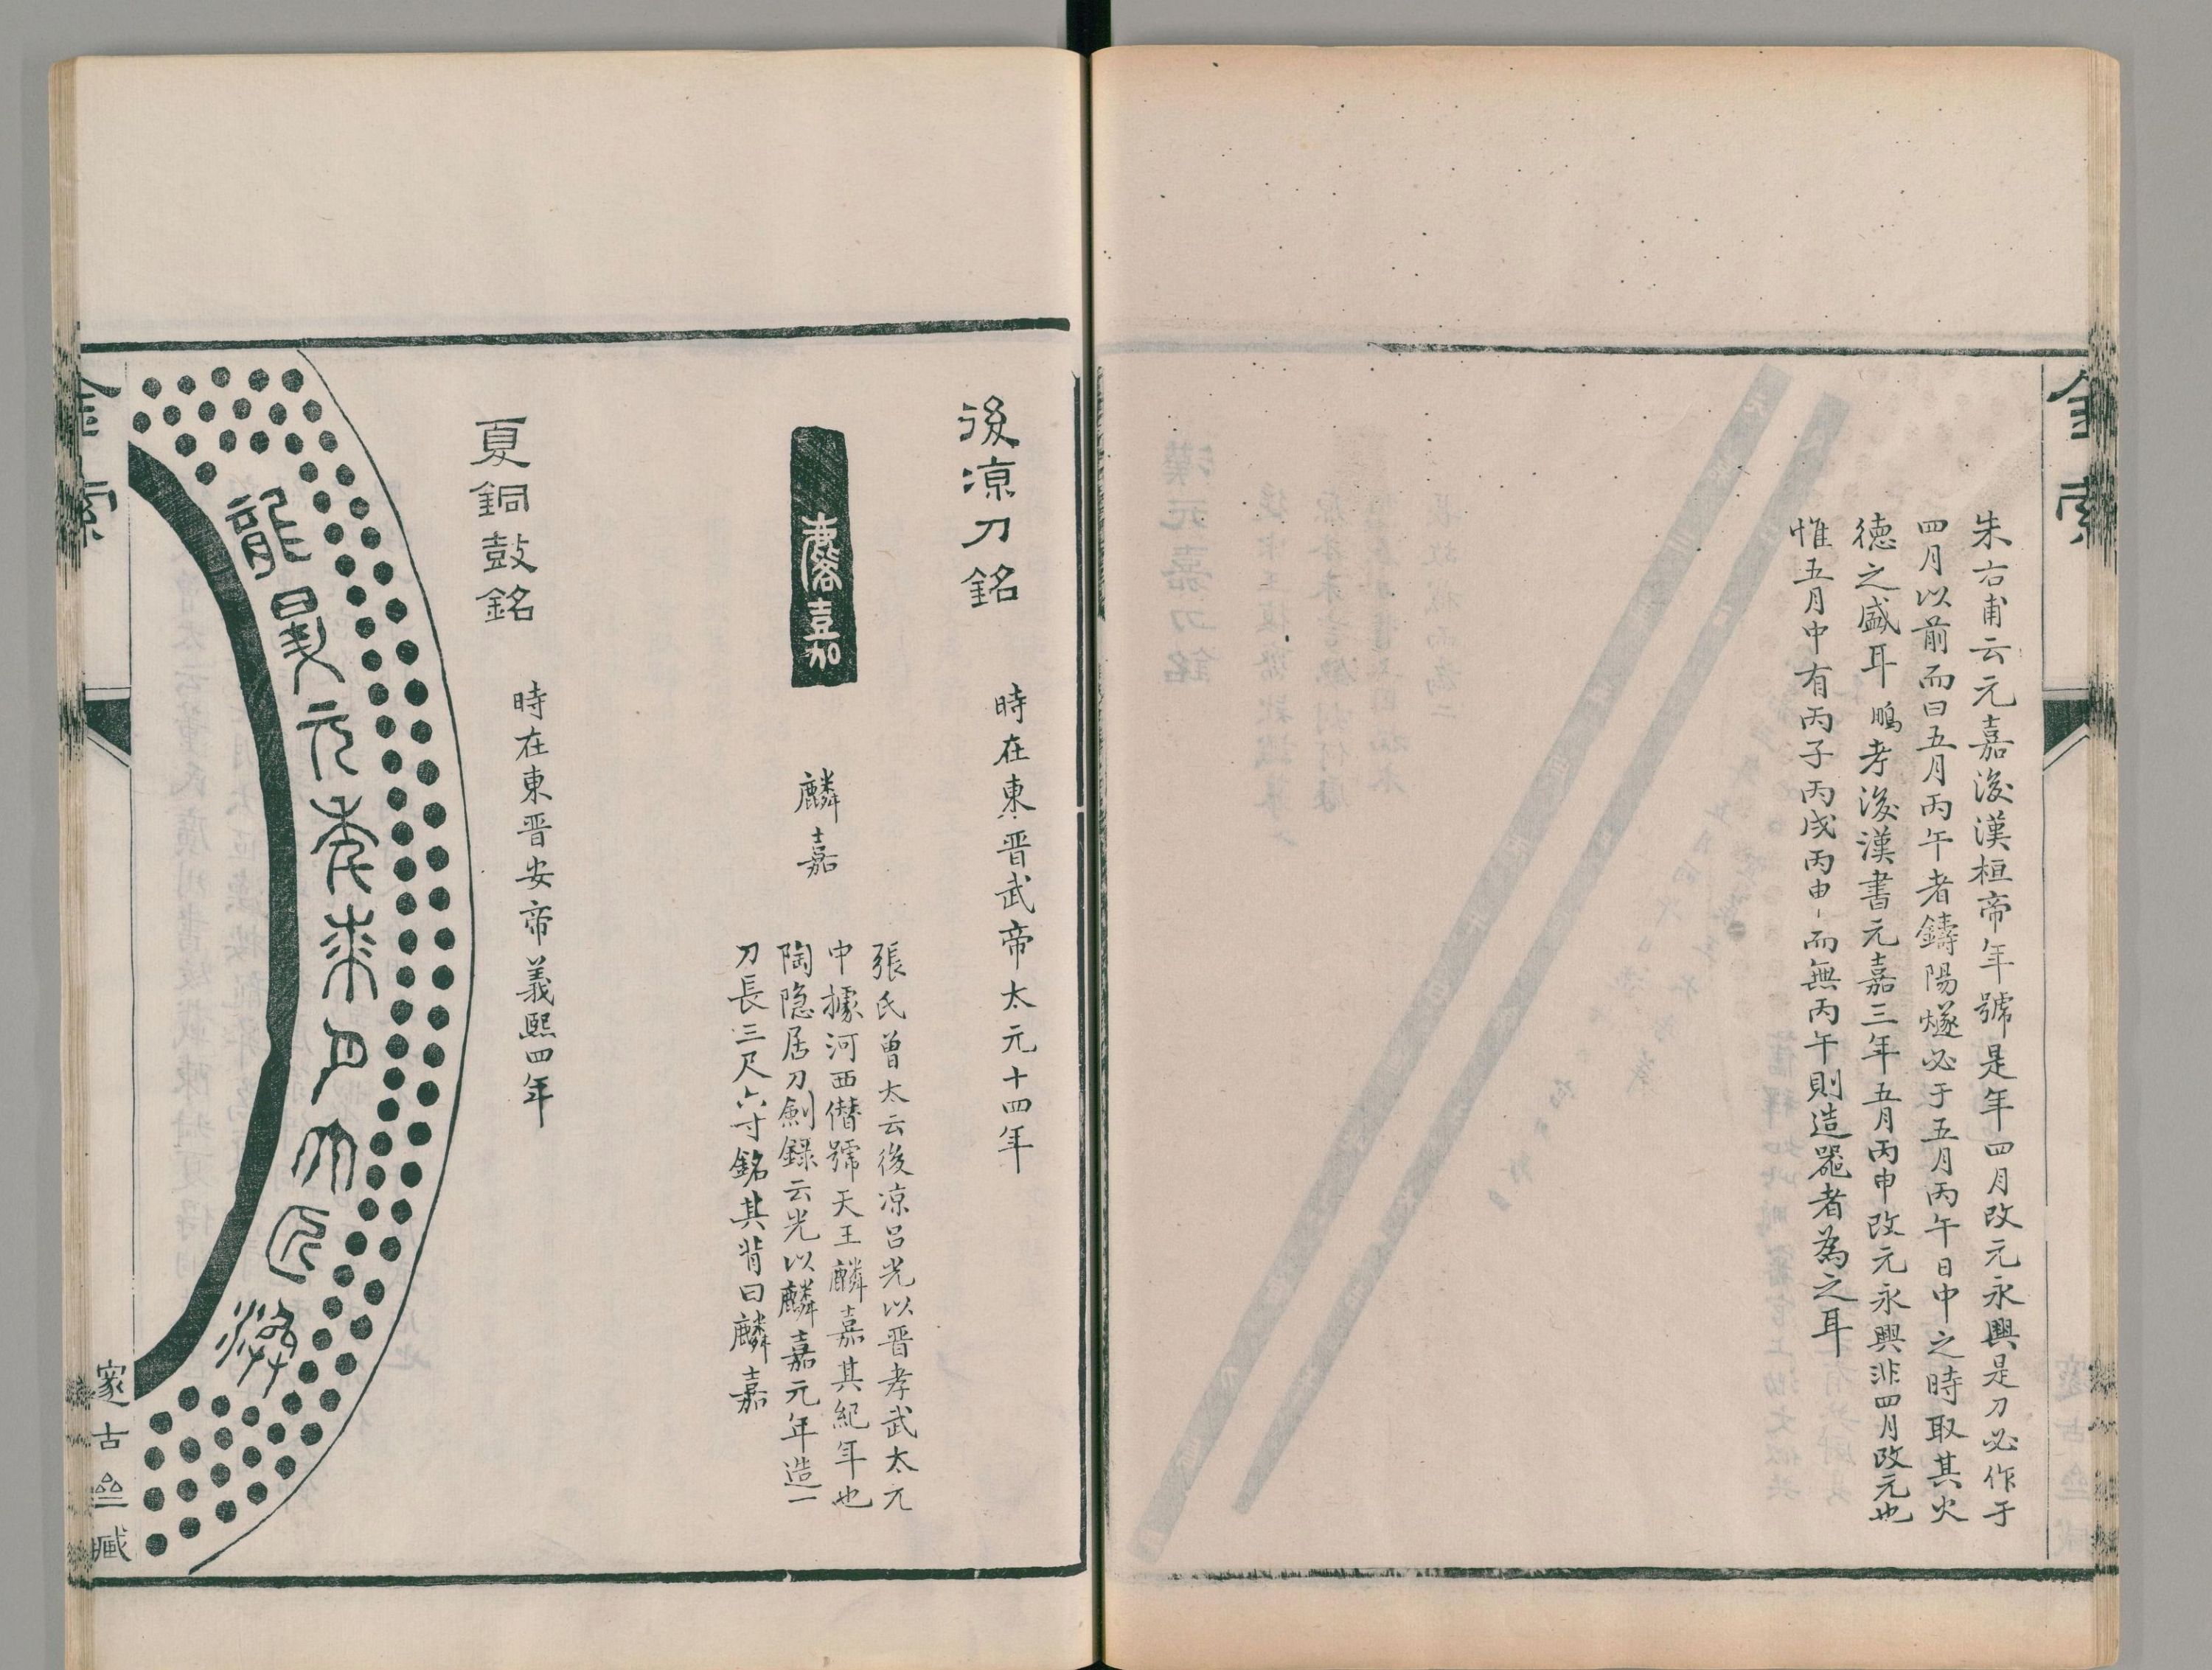 朱右甫云元嘉後漢桓帝年號是年四月改元永興是刀必作于
四月以前而曰五月丙午者鑄陽燧必于五月丙午日中之時取其火
德之盛耳鵬考後漢書元嘉三年五月丙申改元永興非四月改元也
惟五月中有丙子丙戌丙申而無丙午則造器者為之耳
金索
後涼刀銘
時在東晋武帝太元十四年
麟嘉
麟嘉
張氏曾太云後涼呂光以晋孝武太元
中據河西僭號天王麟嘉其紀年也
陶隐居刀劍録云光以麟嘉元年造一
刀長三尺六寸銘其背曰麟嘉
夏銅鼓銘
時在東晋安帝義熙四年
龍昇元年
金索